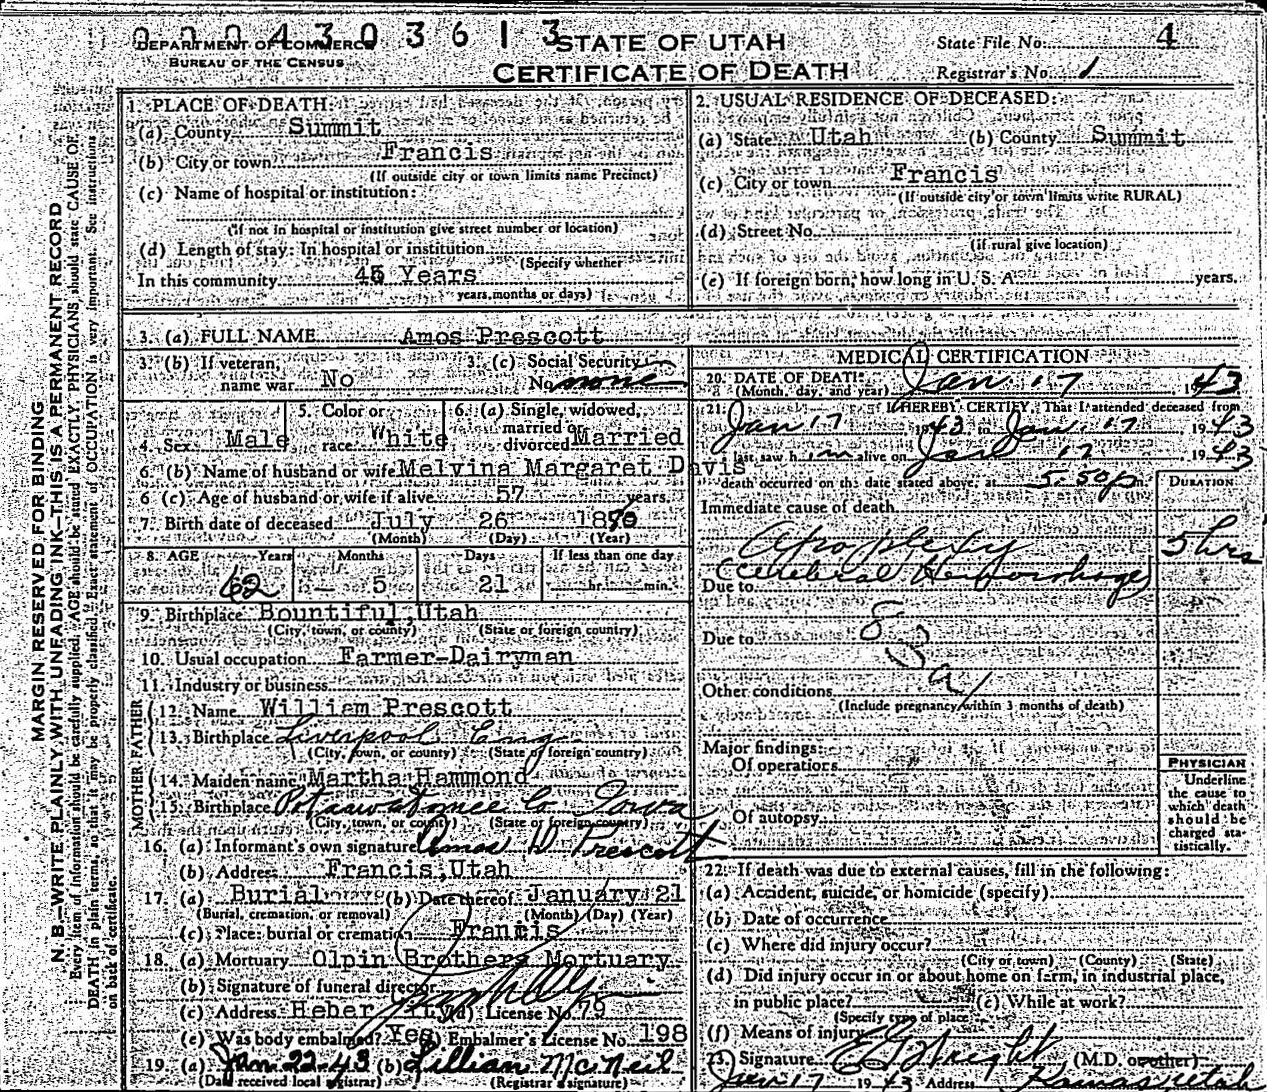 0 0 0 4 3 0 3 6 1 3
DEPARTMENT OF COMMERCE
BUREAU OF THE CENSUS
STATE OF UTAH
CERTIFICATE OF DEATH
State File No. 4
Registrar's No. 1
MARGIN RESERVED FOR BINDING
N. B.—WRITE PLAINLY, WITH UNFADING INK—THIS IS A PERMANENT RECORD
Every item of information should be carefully supplied. AGE should be stated EXACTLY. PHYSICIANS should state CAUSE OF
DEATH in plain terms, so that it may be properly classified. Exact statement of OCCUPATION is very important. See instructions
on back of certificate.
1. PLACE OF DEATH:
(a) County Summit
(b) City or town Francis
(If outside city or town limits name Precinct)
(c) Name of hospital or institution:
(If not in hospital or institution give street number or location)
(d) Length of stay: In hospital or institution
(Specify whether
In this community 45 Years
years, months or days)
2. USUAL RESIDENCE OF DECEASED:
(a) State Utah (b) County Summit
(c) City or town Francis
(If outside city or town limits write RURAL)
(d) Street No.
(if rural give location)
(e) If foreign born, how long in U. S. A. years.
3. (a) FULL NAME Amos Prescott
3. (b) If veteran,
name war No
3. (c) Social Security
No. none
4. Sex Male
5. Color or
race White
6. (a) Single, widowed,
married or
divorced Married
6. (b) Name of husband or wife Melvina Margaret Davis
6 (c). Age of husband or wife if alive 57 years.
7. Birth date of deceased July 26 1880
(Month) (Day) (Year)
8. AGE Years Months Days If less than one day
62 5 21 hr. min.
9. Birthplace Bountiful, Utah
(City, town, or county) (State or foreign country)
10. Usual occupation Farmer-Dairyman
11. Industry or business
FATHER
12. Name William Prescott
13. Birthplace Liverpool Eng.
(City, town, or county) (State or foreign country)
MOTHER
14. Maiden name Martha Hammond
15. Birthplace Potawatomee Co Iowa
(City, town, or county) (State or foreign country)
16. (a) Informant's own signature Amos D Prescott
(b) Address Francis, Utah
17. (a) Burial (b) Date thereof January 21
(Burial, cremation, or removal) (Month) (Day) (Year)
(c) Place: burial or cremation Francis
18. (a) Mortuary Olpin Brothers Mortuary
(b) Signature of funeral director
(c) Address Heber City (d) License No. 75
(e) Was body embalmed? Yes (f) Embalmer's License No. 198
19. (a) Jan. 22-43 (b) Lillian McNeil
(Date received local registrar) (Registrar's signature)
MEDICAL CERTIFICATION
20. DATE OF DEATH:
(Month, day, and year) Jan. 17, 43
21. I HEREBY CERTIFY, That I attended deceased from
Jan 17 1943 to Jan. 17 1943
I last saw him alive on Jan 17, 1943
death occurred on the date stated above, at 5:50p m.
DURATION
Immediate cause of death
Apoplexy 5 hrs
Due to Cerebral Hemorrhage
Due to
83a
Other conditions
(Include pregnancy within 3 months of death)
Major findings:
Of operations
Of autopsy
PHYSICIAN
Underline
the cause to
which death
should be
charged sta-
tistically.
22. If death was due to external causes, fill in the following:
(a) Accident, suicide, or homicide (specify)
(b) Date of occurrence
(c) Where did injury occur?
(City or town) (County) (State)
(d) Did injury occur in or about home on farm, in industrial place,
in public place? (e) While at work?
(Specify type of place)
(f) Means of injury
23. Signature (M.D. or other)
Jan 17 1943 Address Kamas Utah